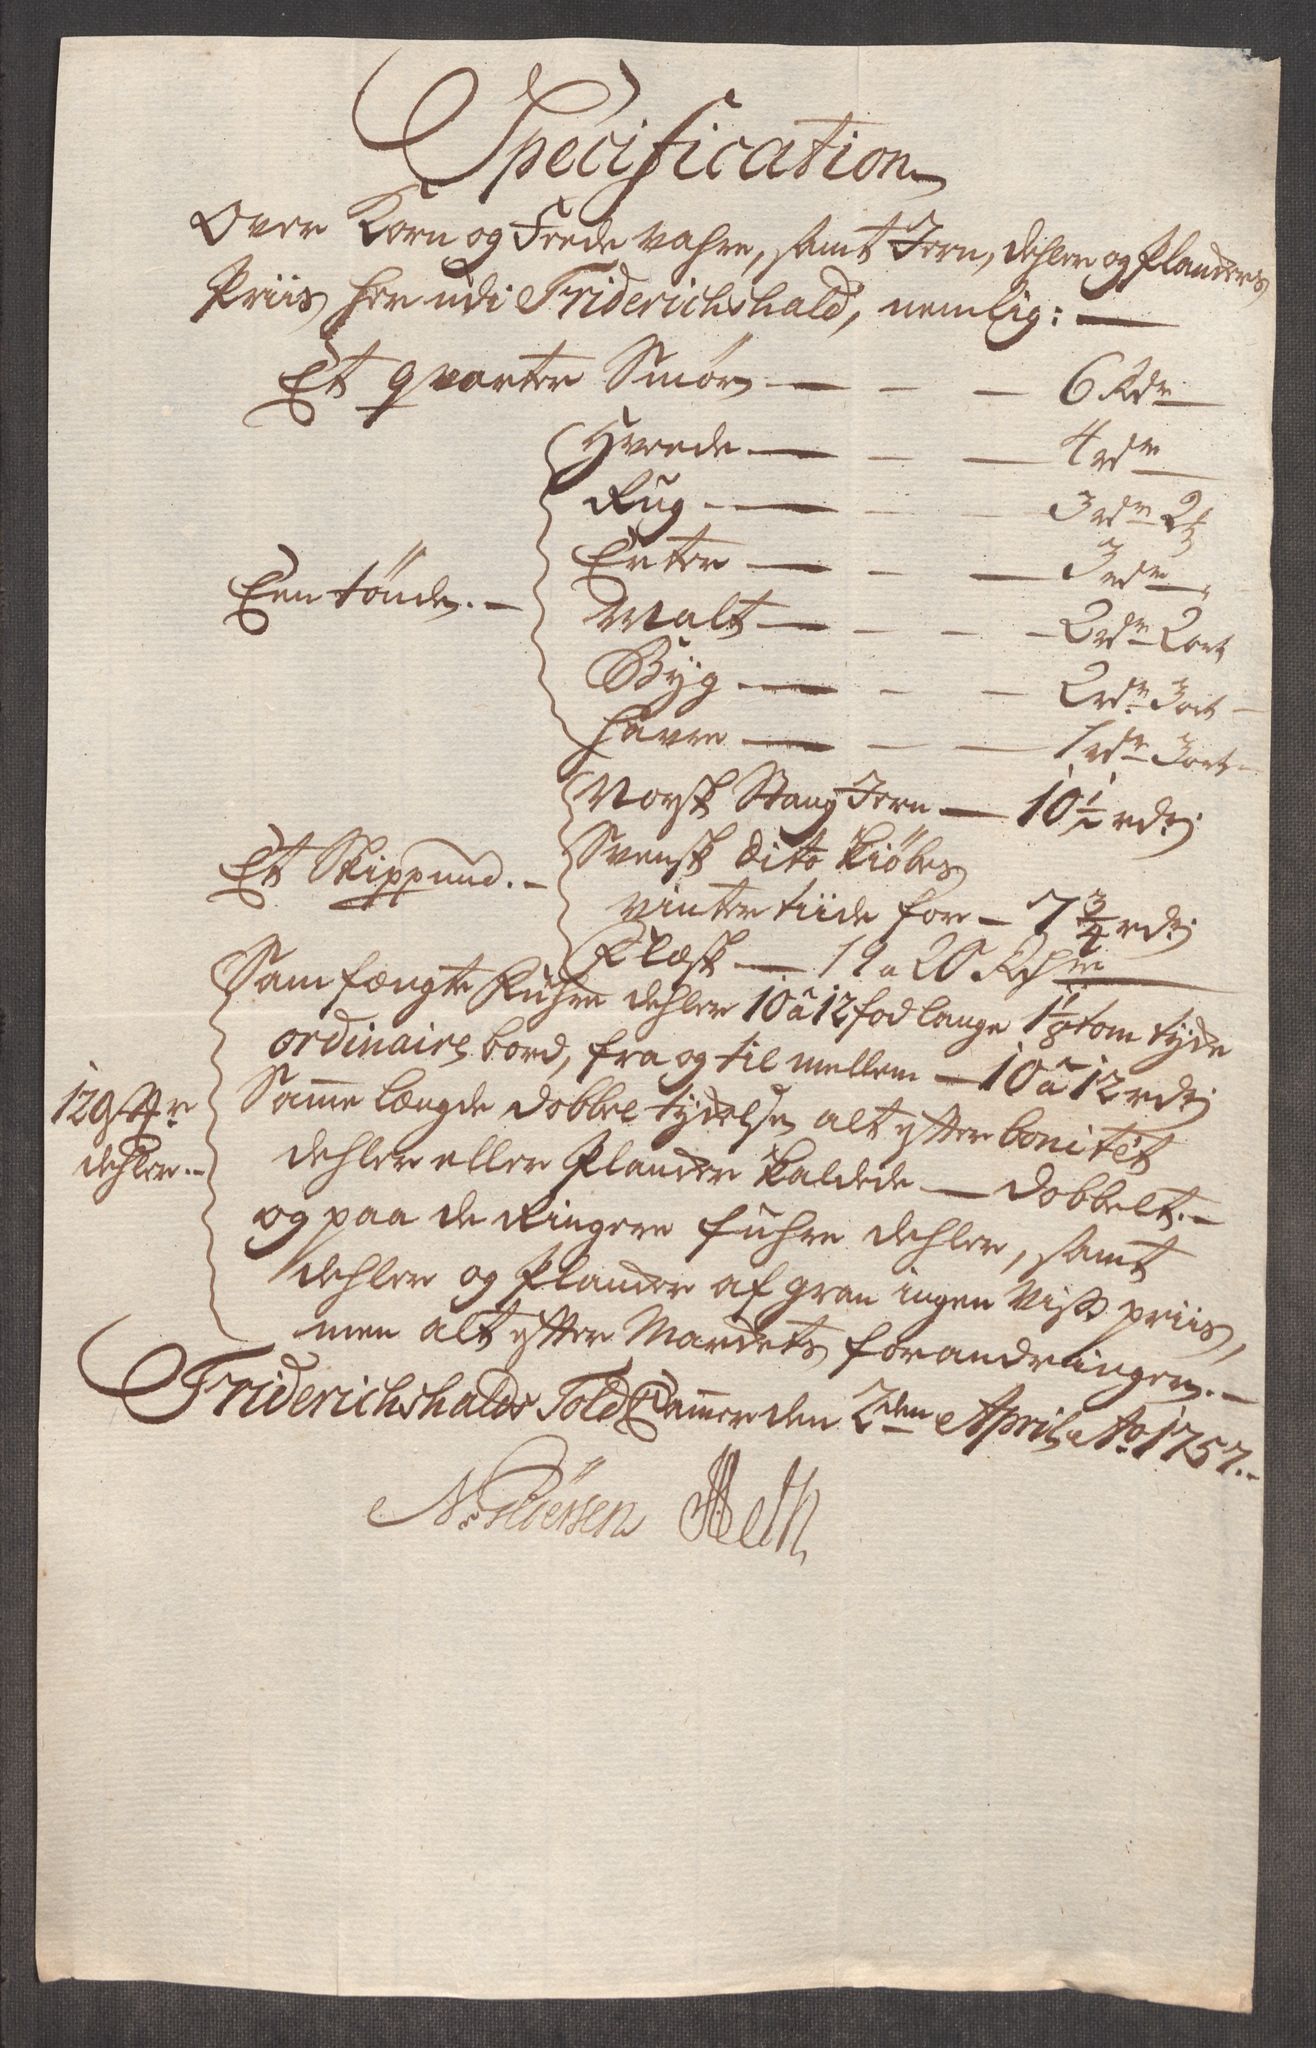 Specification
Over Korn og Feede vahre, samt Jern, dehler og Planders
Priis her udi Friderichshald, nemlig: —
Et qvarter Smør — — — 6 Rdr
Hvede — — — 4 rdr
Rug — — — 3 rdr 2
Erter — — — 3 rdr
Een tönde. — Malt — — — 2 rdr 2 ort
Byg — — — 2 rdr 3 ort —
Havre — — — 1 rdr 3 ort —
Norsk Stang Jern — 10 1/2 rdr
Et Skippund. — Svensk dito kiöbes
vinter tiide for — 7 3/4 rdr
Flæsk — 19 a 20 Rdr
Sam fængte Fuhre dehler 10 a 12 fod lange 1 1/8 tom tyde
ordinaire bord, fra og til mellem — 10 a 12 rdr
120 St:r Samme længde dobbel tydelse, alt efter bonitet
dehler. — dehler eller Plander kaldede — dobbelt. —
og paa de Ringere fuhre dehler, samt
dehler og Plander af gran ingen viss priis,
men alt efter Markets forandringer. —
Friderichshalds Told Cammer den 2den April Ao 1757. —